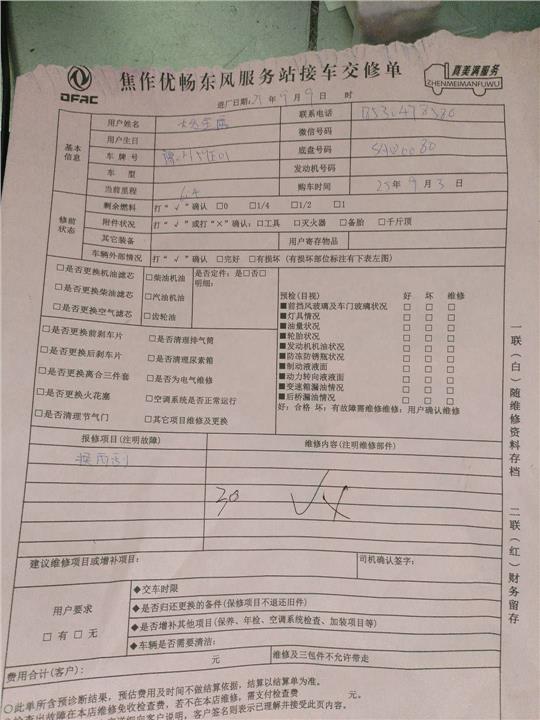 DFAC
焦作优畅东风服务站接车交修单
真美满服务
ZHENMEIMANFUWU
进厂日期: 21 年 9 月 9 日 时
基本信息
用户姓名
联系电话
用户生日
微信号码
车牌号
底盘号码
车型
发动机号码
当前里程 6.4
购车时间 25 年 9 月 3 日
修前状态
剩余燃料 打“√”确认 □0 □1/4 □1/2 □1
附件状况 打“√”或打“×”确认: □工具 □灭火器 □备胎 □千斤顶
其它装备 用户寄存物品
车辆外部情况 打“√”确认 □完好 □有损坏 (有损坏部位标注有下表左图)
□是否更换机油滤芯 □柴油机油
□是否更换柴油滤芯 □汽油机油
□是否更换空气滤芯 □齿轮油
是否定件: 是□否□
明细:
□是否更换前刹车片 □是否清理排气筒
□是否更换后刹车片 □是否清理尿素箱
□是否更换离合三件套 □是否为电气维修
□是否更换火花塞 □空调系统是否正常运行
□是否清理节气门 □其它项目维修及更换
预检(目视) 好 坏 维修
■前挡风玻璃及车门玻璃状况 □ □ □
■灯具情况 □ □ □
■油量状况 □ □ □
■轮胎状况 □ □ □
■发动机机油状况 □ □ □
■防冻防锈瓶状况 □ □ □
■制动液液面 □ □ □
■动力转向液液面 □ □ □
■变速箱漏油情况 □ □ □
■后桥漏油情况 □ □ □
好: 合格 坏: 有故障需维修维修: 用户确认维修
报修项目(注明故障) 维修内容(注明维修部件)
换雨刮
30
建议维修项目或增补项目: 司机确认签字:
用户要求
□有 □无
◆交车时限
◆是否归还更换的备件(保修项目不退还旧件)
◆是否增补其他项目(保养、年检、空调系统检查、加装项目等)
◆车辆是否需要清洁:
费用合计(客户): 元 维修及三包件不允许带走
○此单所含预诊断结果, 预估费用及时间不做结算依据, 结算以结算单为准。
检查出故障在本店维修免收检查费, 若不在本店维修, 需支付检查费 元。
向客户说明, 客户签名则表示已理解并接受此页内容。
一联(白)随维修资料存档
二联(红)财务留存